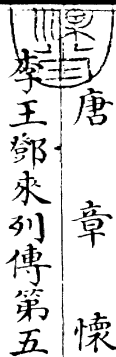 唐章懷
李王鄧來列傳第五